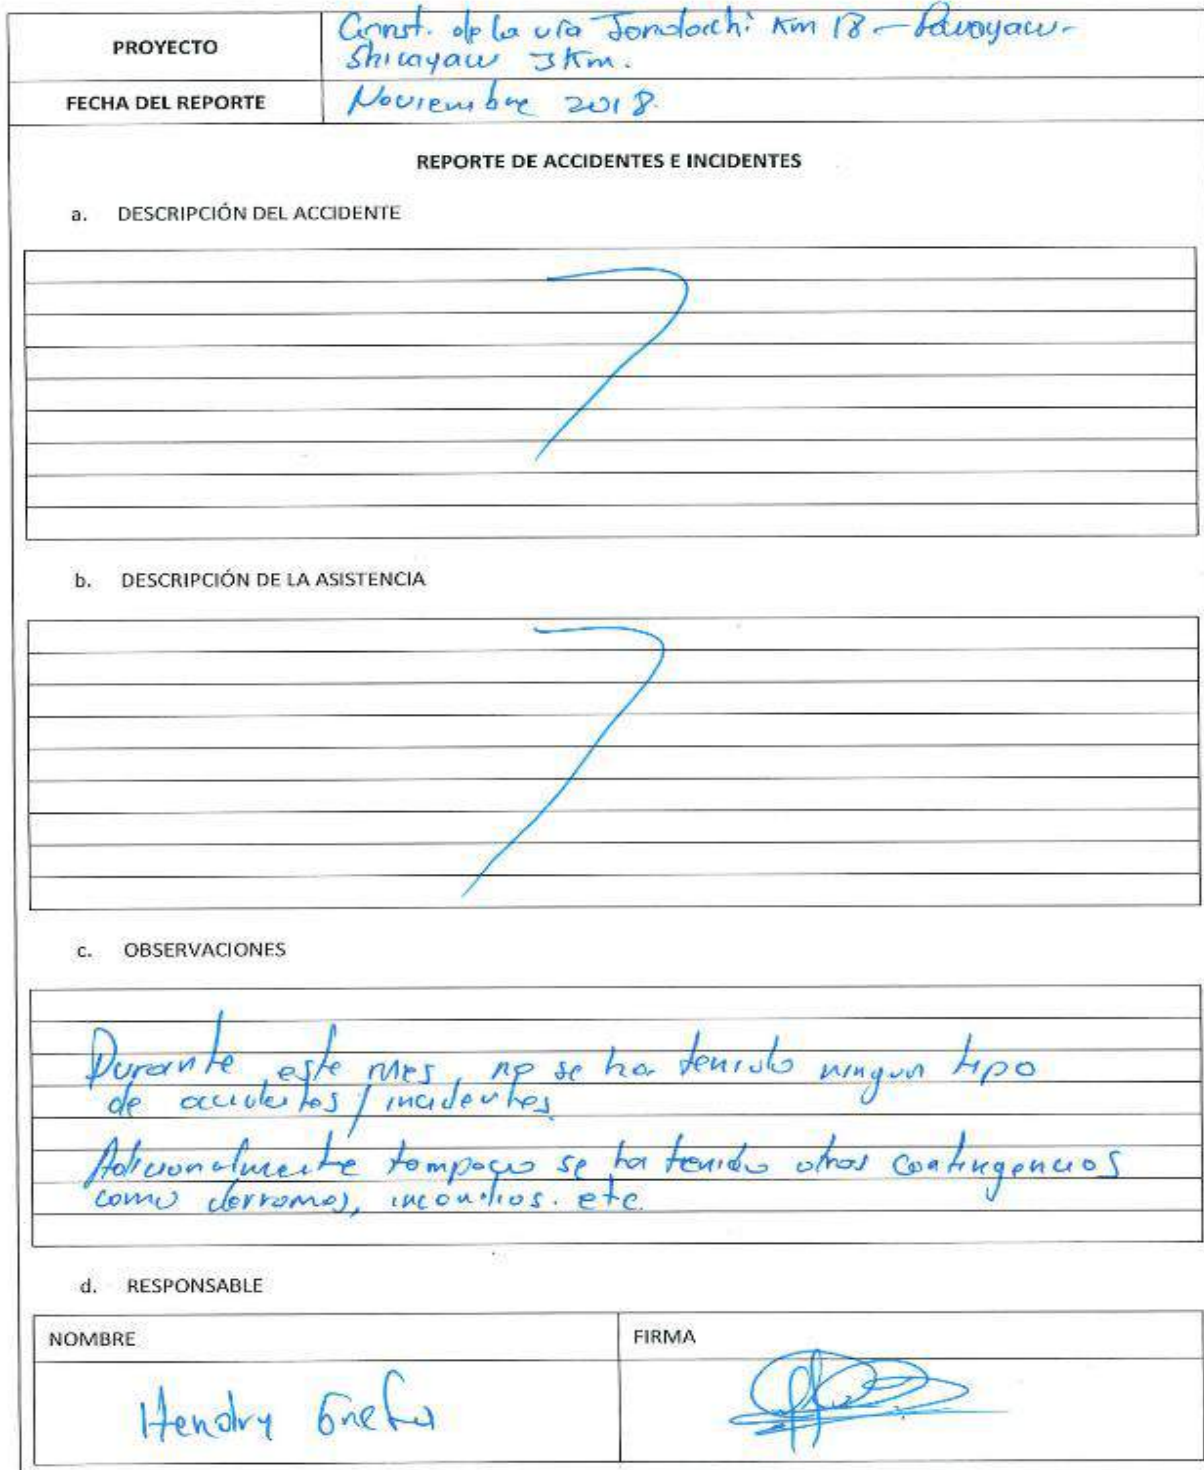 PROYECTO
Const. de la vía Jondachi Km 18 -
Shicayacu 3Km.
FECHA DEL REPORTE
Noviembre 2018.
REPORTE DE ACCIDENTES E INCIDENTES
a. DESCRIPCIÓN DEL ACCIDENTE
b. DESCRIPCIÓN DE LA ASISTENCIA
c. OBSERVACIONES
Durante este mes, no se ha tenido ningun tipo
de accidentes / incidentes
Adicionalmente tampoco se ha tenido otras contingencias
como derrames, incendios. etc.
d. RESPONSABLE
NOMBRE
FIRMA
Hendry Grefa